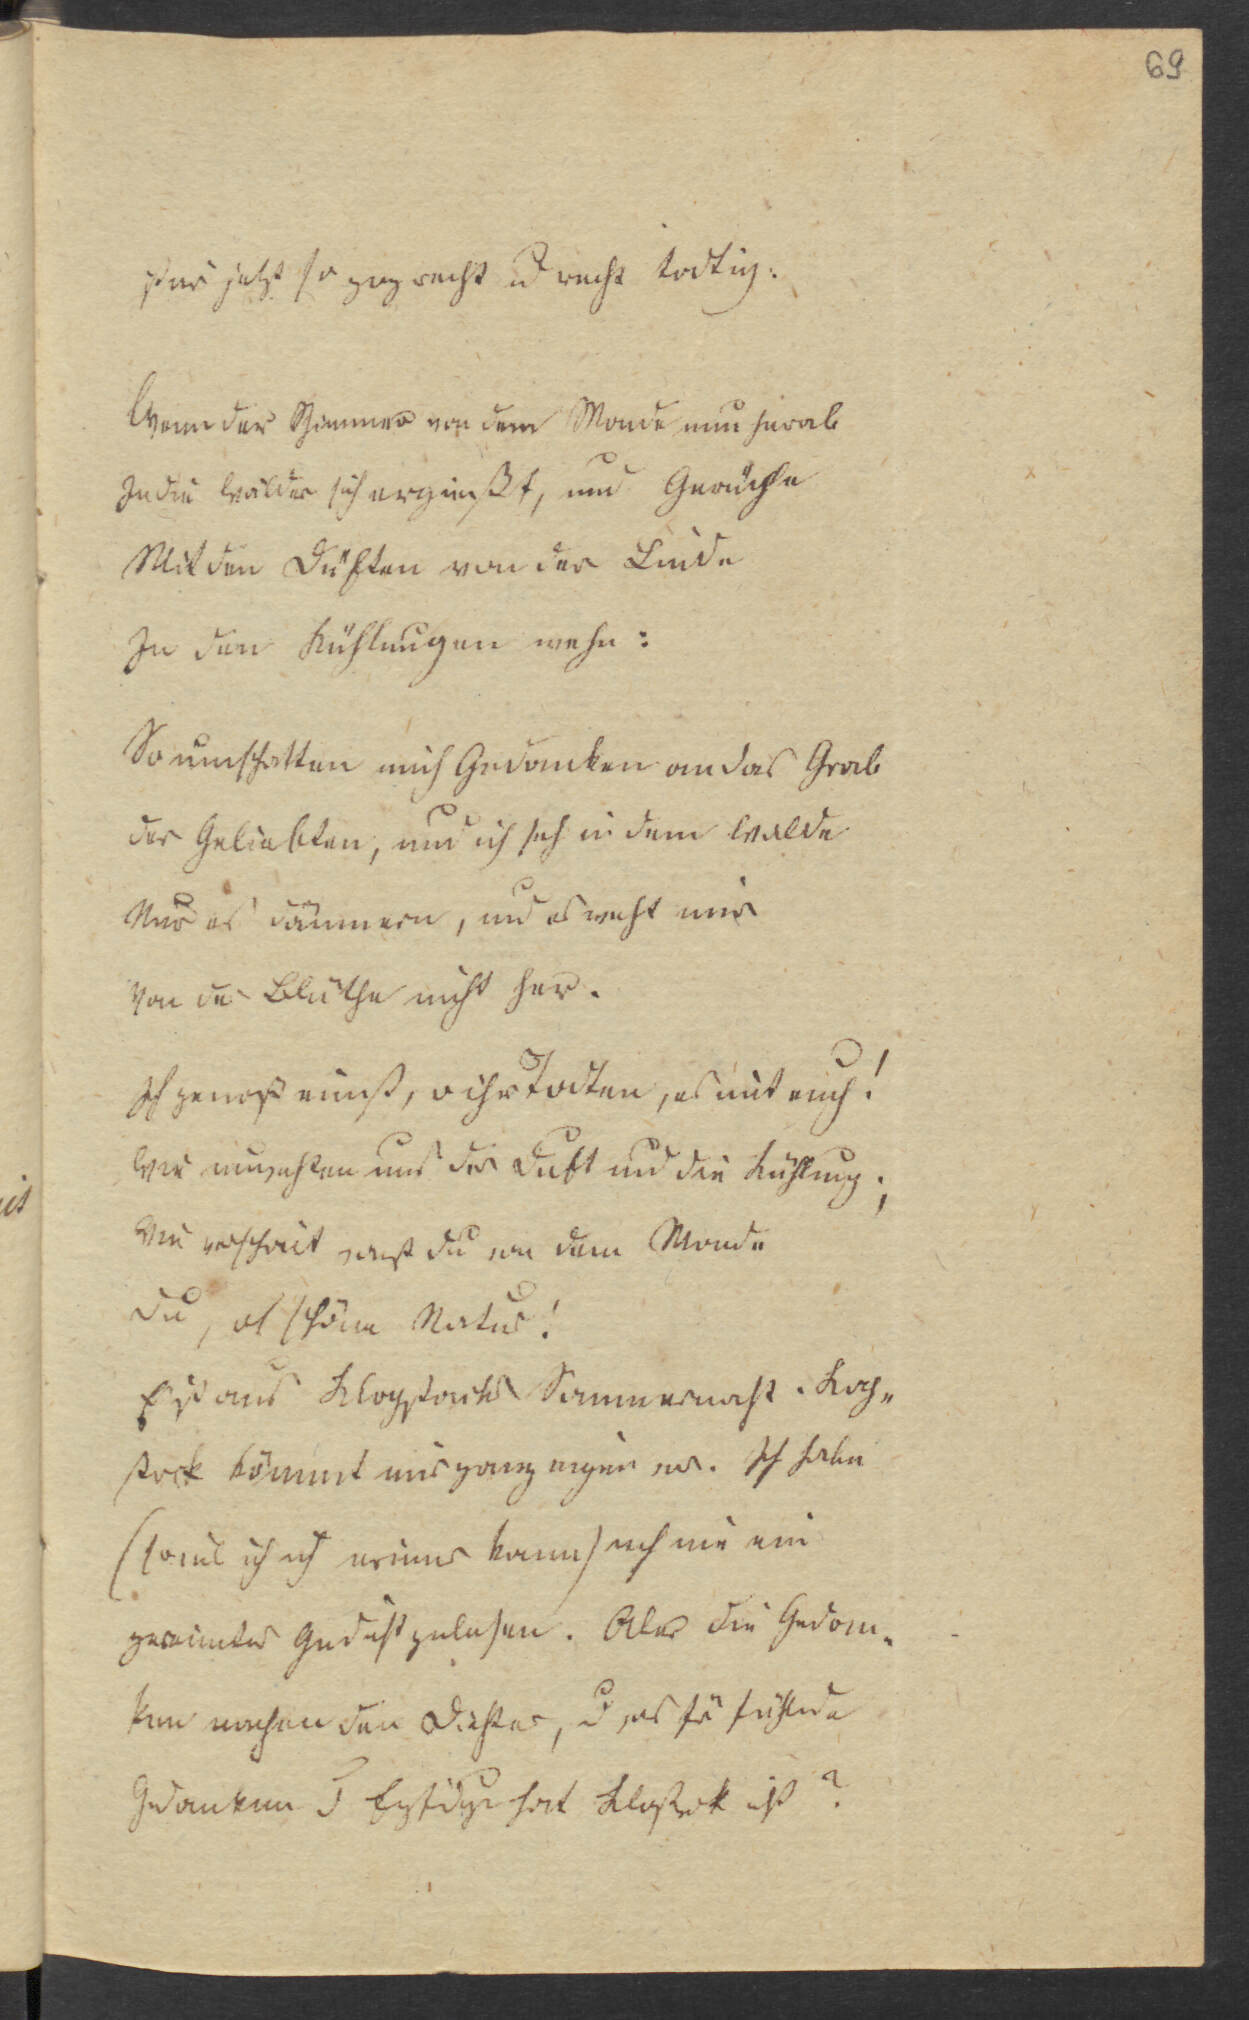 69
jetzt so ganz recht u recht todtig.
Wenn der Schimmer von dem Monde nun herab
In die Wälder sich ergießt, und Gerüche
Mit den Düften von der Linde
In den Kühlungen wehn:
So umschatten mich Gedanken an das Grab
der Geliebten, und ich seh in dem Walde
Nur es dämmern, und es weht mir
Von der Blüthe nicht her.
Ich genoß einst, o ihr Todten, es mit euch!
Wie umwehten uns der Duft und die Kühlung;
Wie verschönt warst du von dem Monde
Du, o schöne Natur!
Ist aus Klopstocks Sommernacht. Klop-
stock kömmt mir ganz eigen vor. Ich habe
(soviel ich mich erinner kann) noch nie ein
gereimtes Gedicht gelesen. Aber die Gedan-
ken machen den Dichter, u wer so fühlende
Gedanken hat Klopstok ist?